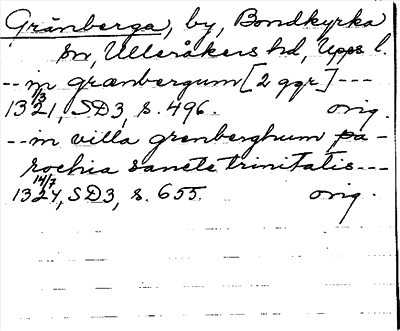 Gränberga, by, Bondkyrka
sn, Ulleråkers hd, Upps. l.
-- in grænbergum [2 ggr] ---
1/3
1321, SD3, s. 496. orig.
-- in villa grenberghum pa-
rochia sancte trinitatis ---
14/7
1324, SD3, s. 655. orig.